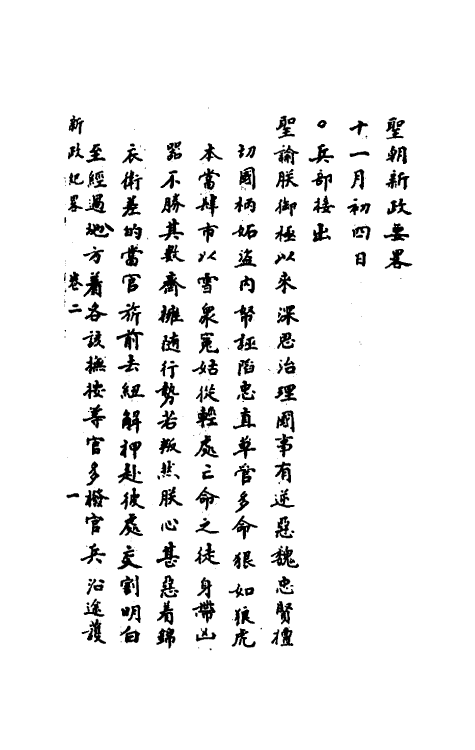 聖朝新政要畧
十一月初四日
○兵部接出
聖諭朕御極以來深思治理國事有逆惡魏忠賢擅
竊國柄妬盜內帑誣陷忠直草菅多命狠如狼虎
本當肆市以雪衆冤姑從輕處亡命之徒身帶凶
器不勝其數齎擁隨行勢若叛然朕心甚惡着錦
衣衛差的當官旂前去紐解押赴彼處交割明白
至經過地方着各該撫按等官多撥官兵沿途護
新政紀畧 卷二 一